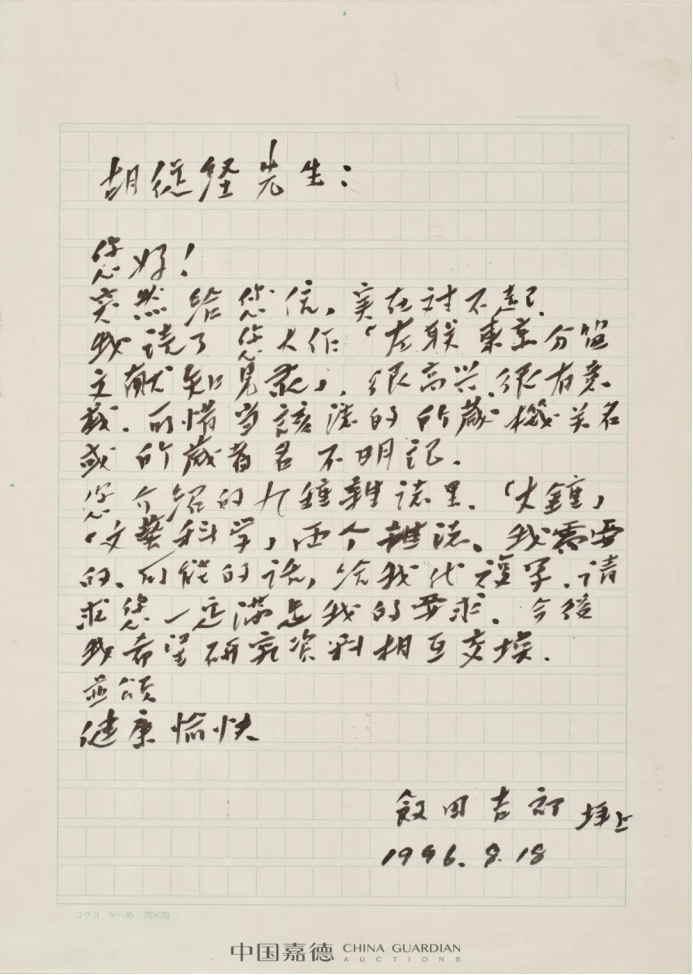 胡從経先生：
您好！
突然给您信，实在対不起.
我读了您大作「左联東京分盟
文献知見录」，很高兴、很有意
义. 可惜当該誌的所蔵機关名
或所蔵者名不明記.
您介绍的九種雜誌里、「大鐘」
「文藝科学」両个雑誌、我需要
的、可能的话，给我代複写. 请
求您一定满足我的要求. 今後
我希望研究资料相互交換.
並頌
健康愉快
飯田吉郎 拝上
1996. 9. 18
コクヨ ケ-35 20×20
中国嘉德 CHINA GUARDIAN
AUCTIONS